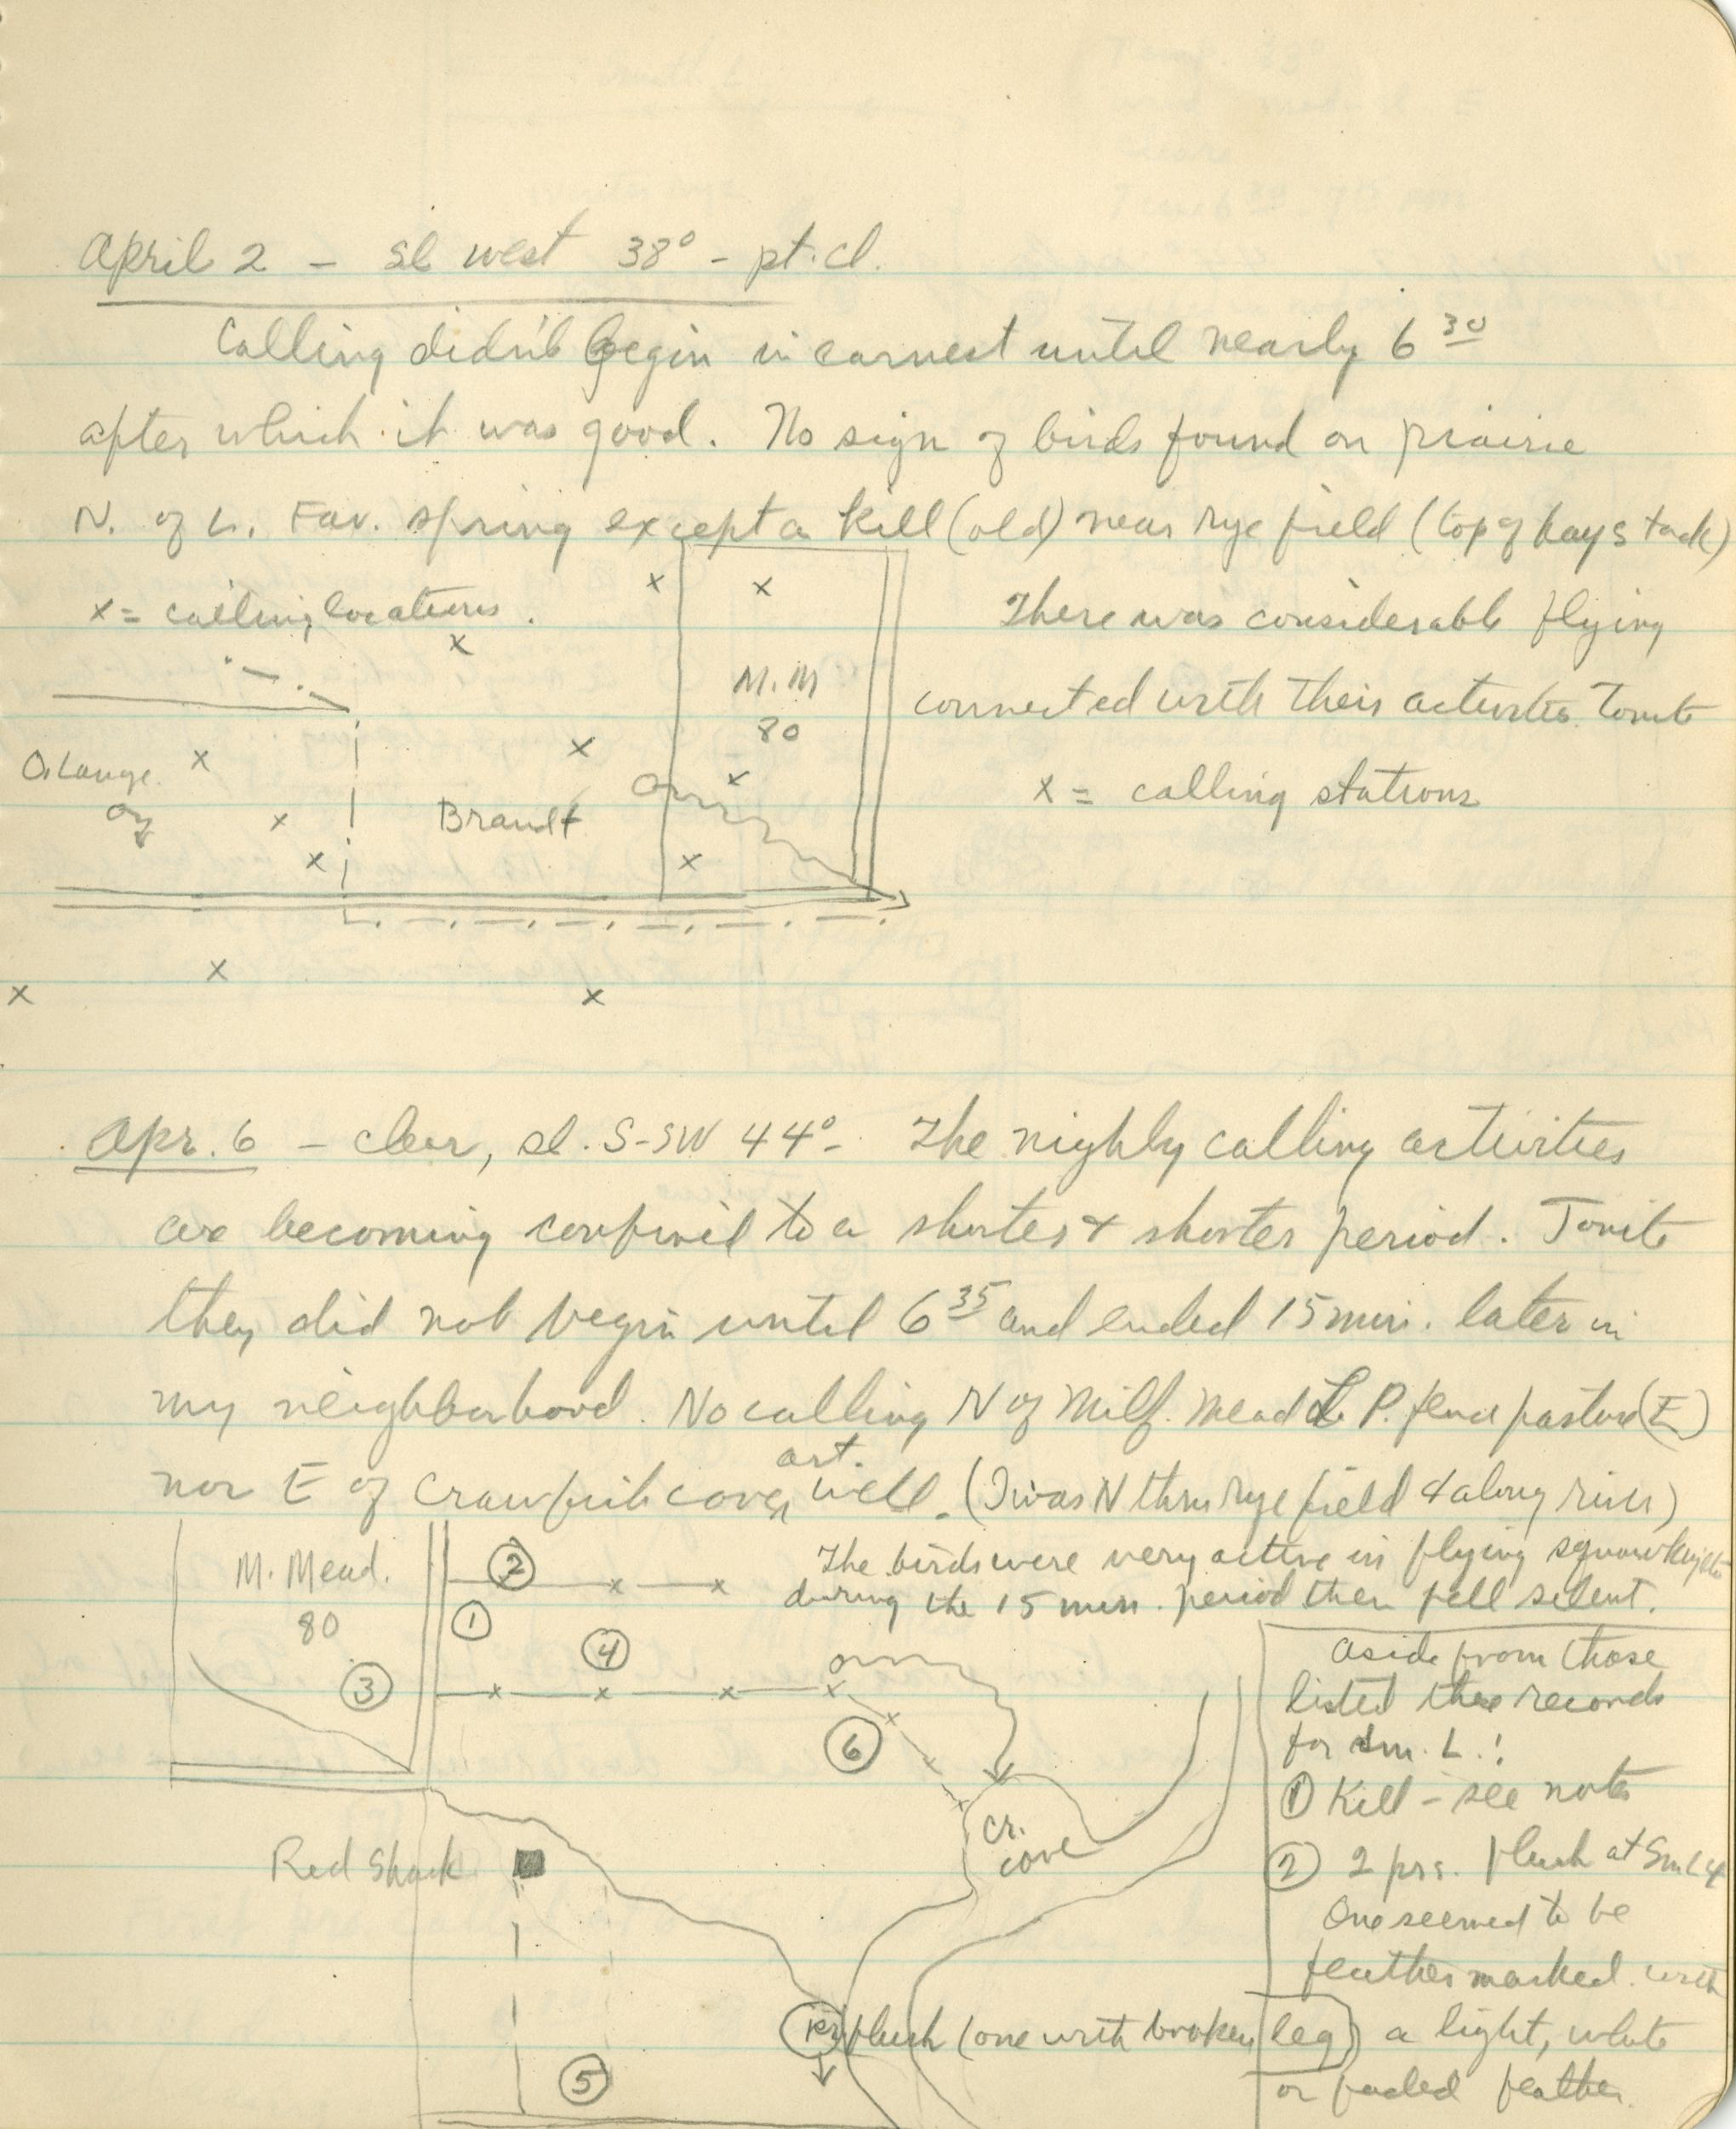 April 2 - sl west 38° - pt. cl.
Calling didn't begin in earnest until nearly 6 30
after which it was good. No sign of birds found on prairie
N. of L. Fav. spring except a kill (old) near rye field (top of haystack)
x = calling locations.
There was considerable flying
connected with their activities tonite
x = calling stations
M. M
80
O. Lange
Brandt
Apr. 6 - clear, sl. S-SW 44° - The nighly calling activities
are becoming confined to a shorter & shorter period. Tonite
they did not begin until 6 35 and ended 15 min. later in
my neighborhood. No calling N of Milf. Mead L. P. fence pasture (E)
nor E of Crawfish cove, art. well. (I was N thru rye field & along river)
The birds were very active in flying
during the 15 min. period then fell silent.
M. Mead.
80
②
①
④
③
⑥
Cr.
cove
Red Shack
⑤
Pr flush (one with broken leg)
Aside from those
listed these records
for Sm. L.:
① Kill - see notes
② 2 prs. flush at Sm L 4
One seemed to be
feather marked with
a light, white
or faded feather.